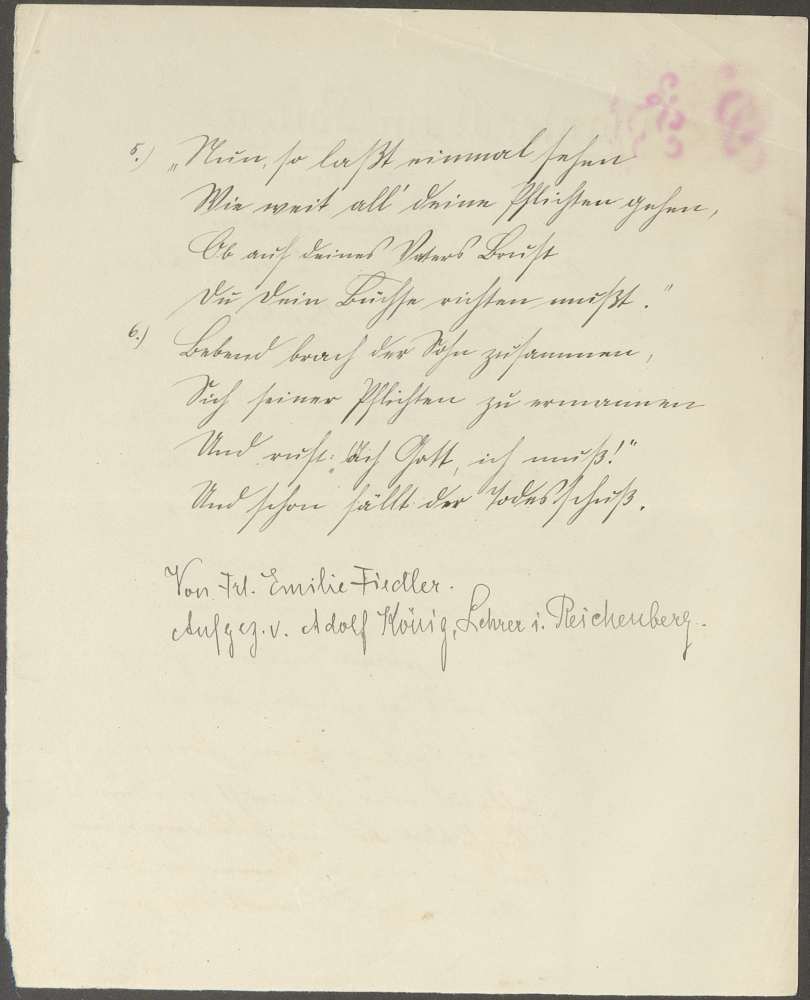 5.) „Nun, so laßt einmal sehen
Wie weit all' deine Pflichten gehen,
Ob auf deines Vaters Brust
Du dein Büchse richten mußt."
6.) Bebend brach der Sohn zusammen,
Sich seiner Pflichten zu ermannen
Und ruft: „Ach Gott, ich muß!"
Und schon fällt der Todesschuß.
Von Frl. Emilie Fiedler.
Aufgez. v. Adolf König, Lehrer i. Reichenberg.